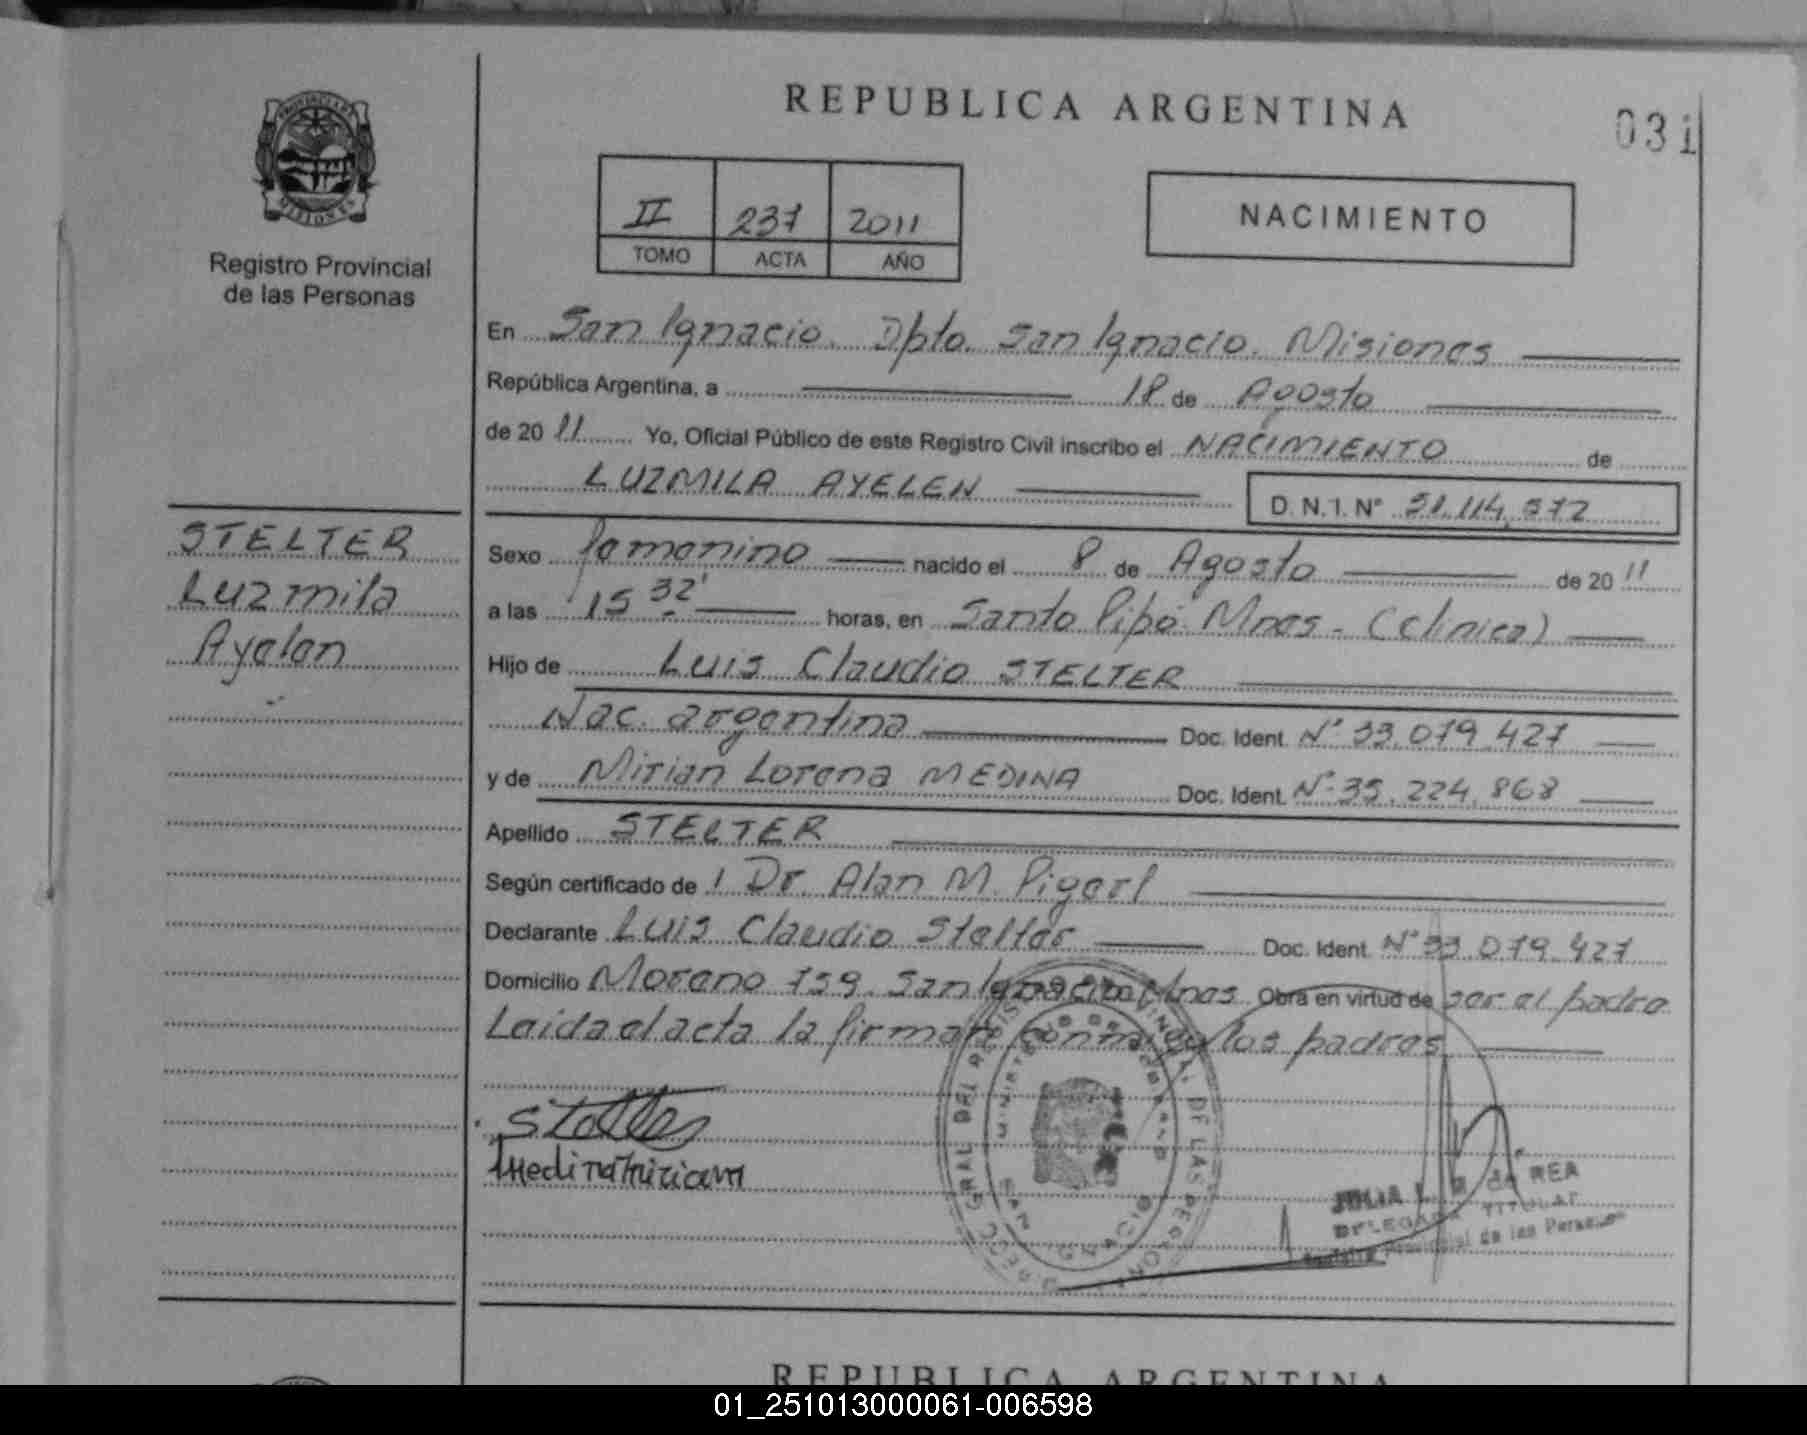 REPUBLICA ARGENTINA
031
PROVINCIA DE
MISIONES
Registro Provincial
de las Personas
II 237 2011
TOMO ACTA AÑO
NACIMIENTO
En San Ignacio. Dpto. San Ignacio. Misiones
República Argentina, a 18 de Agosto
de 2011 Yo, Oficial Público de este Registro Civil inscribo el NACIMIENTO de
LUZMILA AYELEN D. N. I. Nº 51.114.572
STELTER
Luzmila
Ayelen
Sexo femenino nacido el 8 de Agosto de 2011
a las 15 32' horas, en Santo Pipó Mnes - (clinica)
Hijo de Luis Claudio STELTER
Nac. argentina Doc. Ident. Nº 33.079.427
y de Mirian Lorena MEDINA Doc. Ident. Nº 35.224.868
Apellido STELTER
Según certificado de Dr. Alan M.
Declarante Luis Claudio Stelter Doc. Ident. Nº 33.079.427
Domicilio Moreno 759 San Ignacio Mnes Obra en virtud de ser el padre
Leida el acta la firman conmigo los padres
Stelter
Medina Miriam
DE LAS PERSONAS
SAN IGNACIO
JULIA L. de REA
DELEGADA TITULAR
Provincial de las Personas
REPUBLICA ARGENTINA
01_251013000061-006598